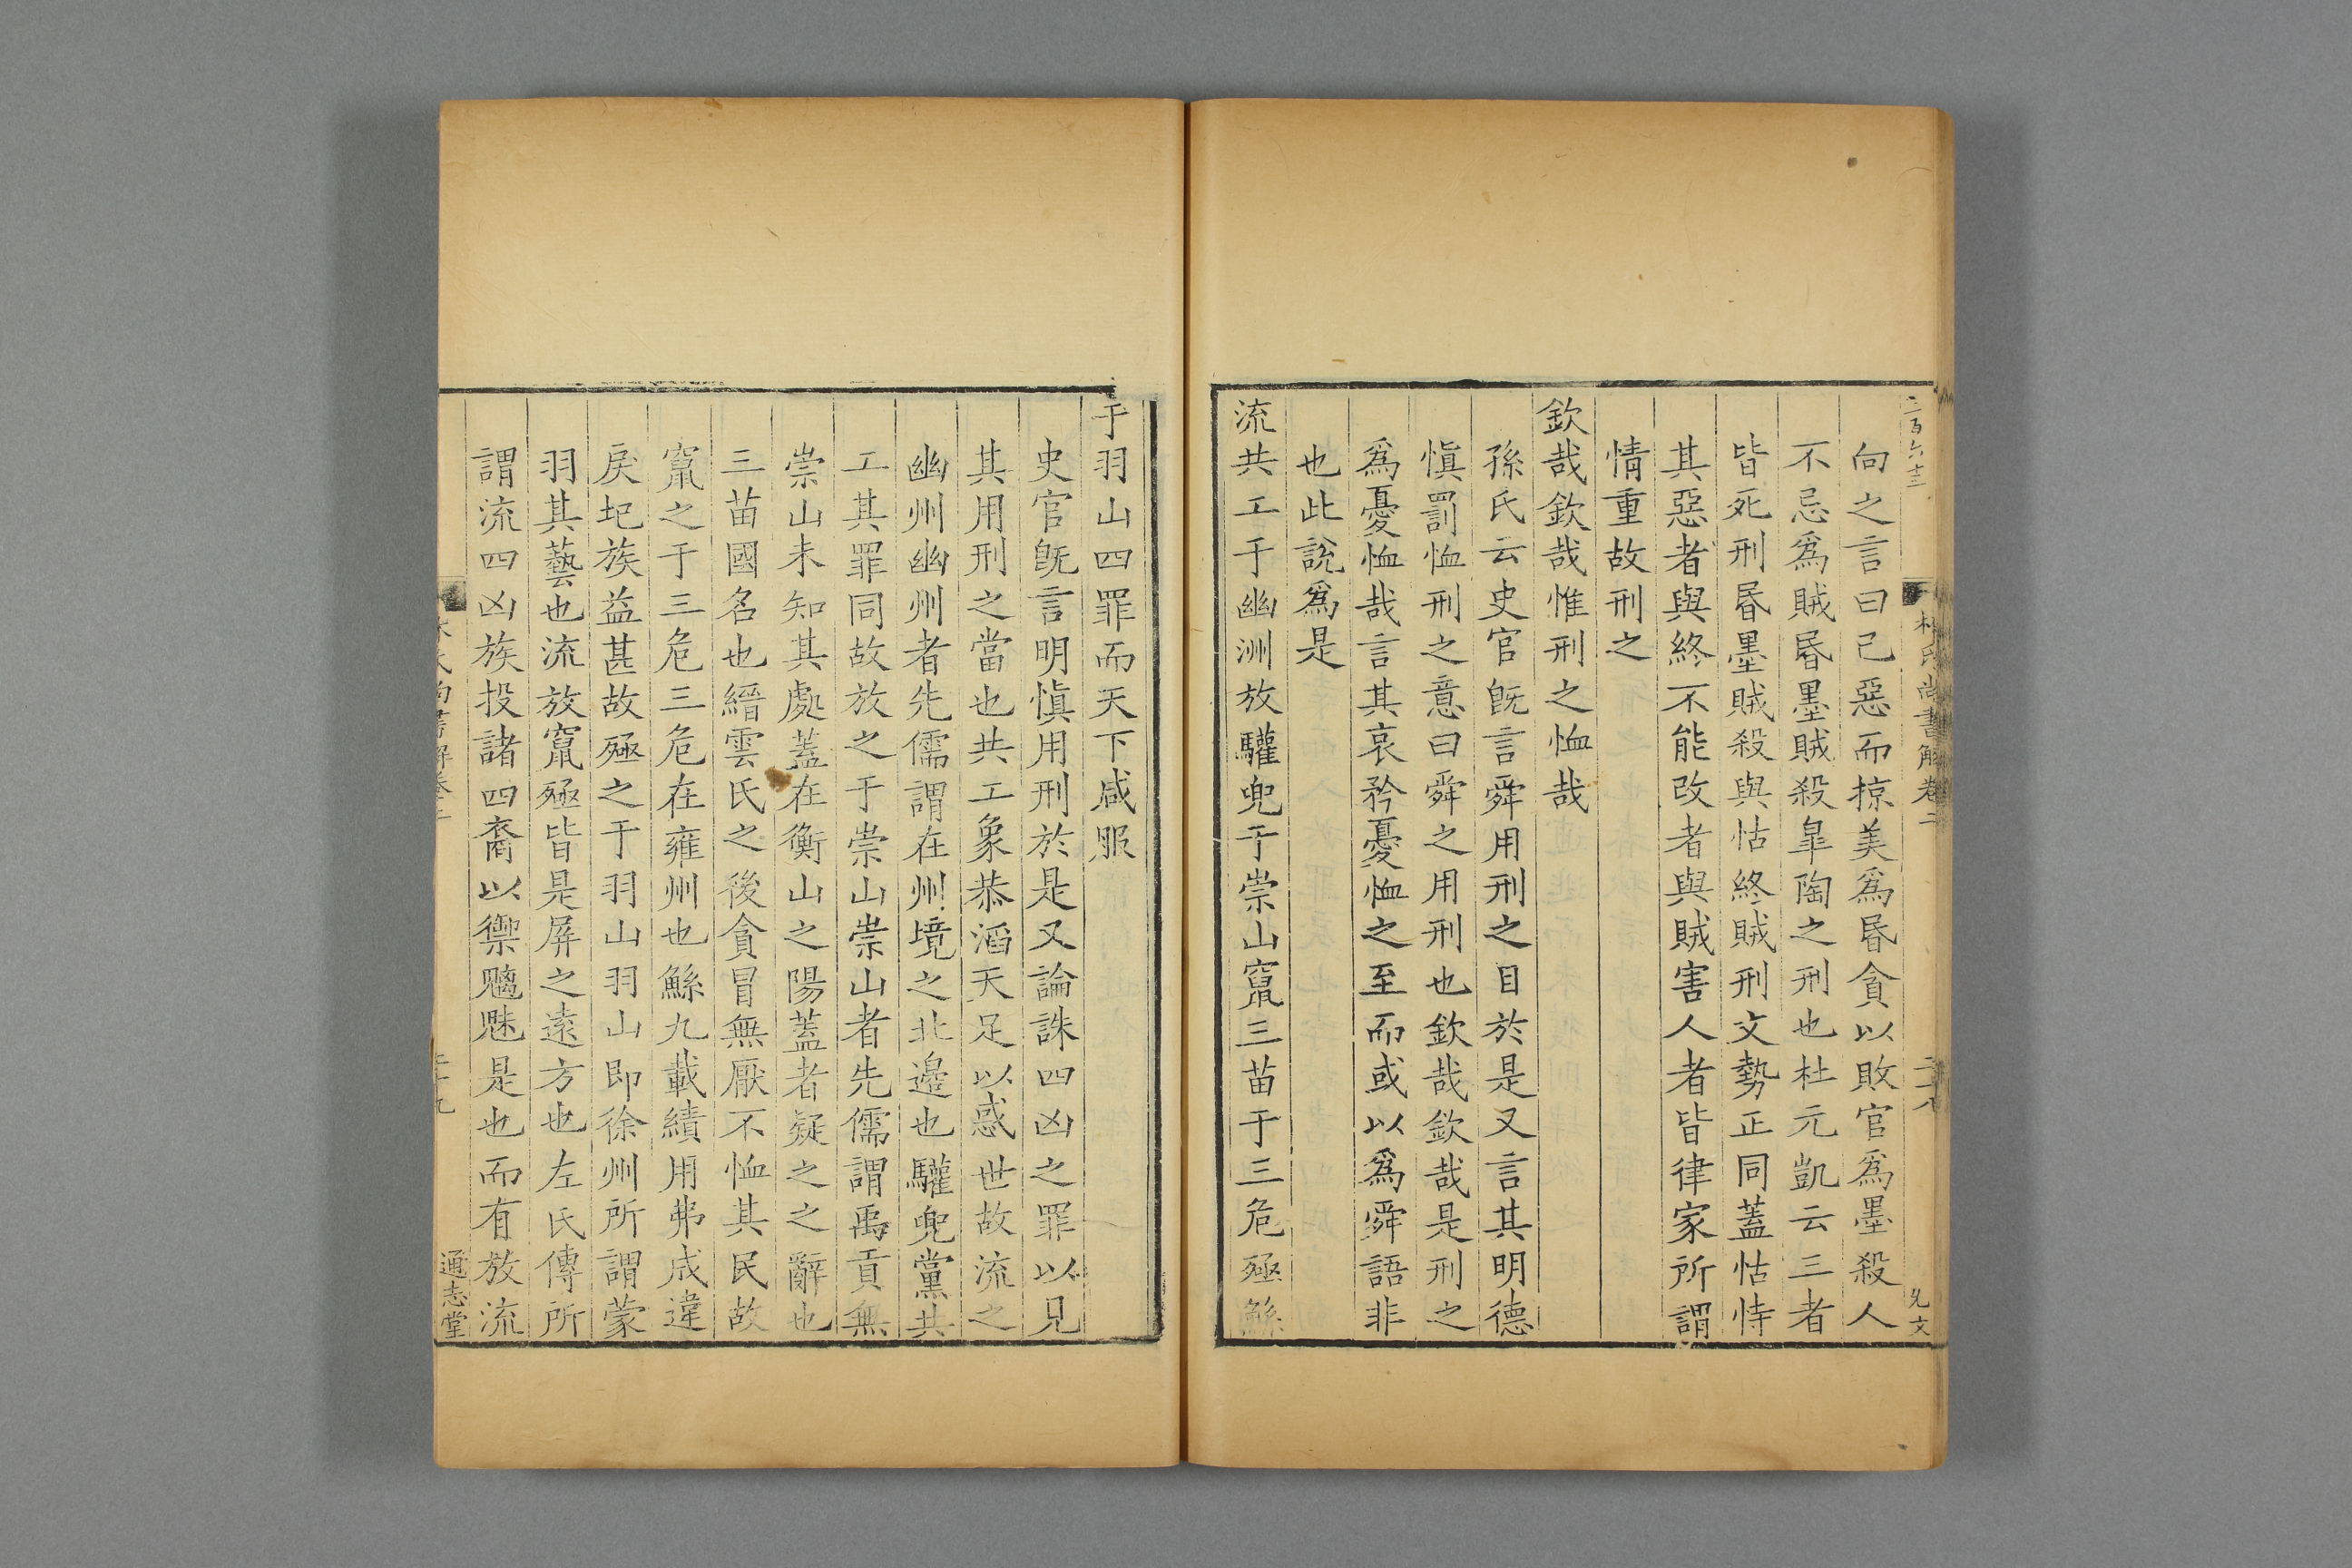 二百六十三
林氏尚書解卷二
二十八
向之言曰己惡而掠美爲昬貪以敗官爲墨殺人
不忌爲賊昬墨賊殺臯陶之刑也杜元凱云三者
皆死刑昬墨賊殺與怙終賊刑文勢正同蓋怙恃
其惡者與終不能改者與賊害人者皆律家所謂
情重故刑之
欽哉欽哉惟刑之恤哉
孫氏云史官旣言舜用刑之目於是又言其明德
愼罰恤刑之意曰舜之用刑也欽哉欽哉是刑之
爲憂恤哉言其哀矜憂恤之至而或以爲舜語非
也此說爲是
流共工于幽洲放驩兜于崇山竄三苗于三危殛鯀
于羽山四罪而天下咸服
史官旣言明愼用刑於是又論誅四凶之罪以見
其用刑之當也共工象恭滔天足以惑世故流之
幽州幽州者先儒謂在州境之北邉也驩兜黨共
工其罪同故放之于崇山崇山者先儒謂禹貢無
崇山未知其處蓋在衡山之陽蓋者疑之之辭也
三苗國名也縉雲氏之後貪冒無厭不恤其民故
竄之于三危三危在雍州也鯀九載績用弗成違
戾圯族益甚故殛之于羽山羽山即徐州所謂蒙
羽其藝也流放竄殛皆是屏之遠方也左氏傳所
謂流四凶族投諸四裔以禦魑魅是也而有放流
林氏尚書解卷二
二十九
通志堂